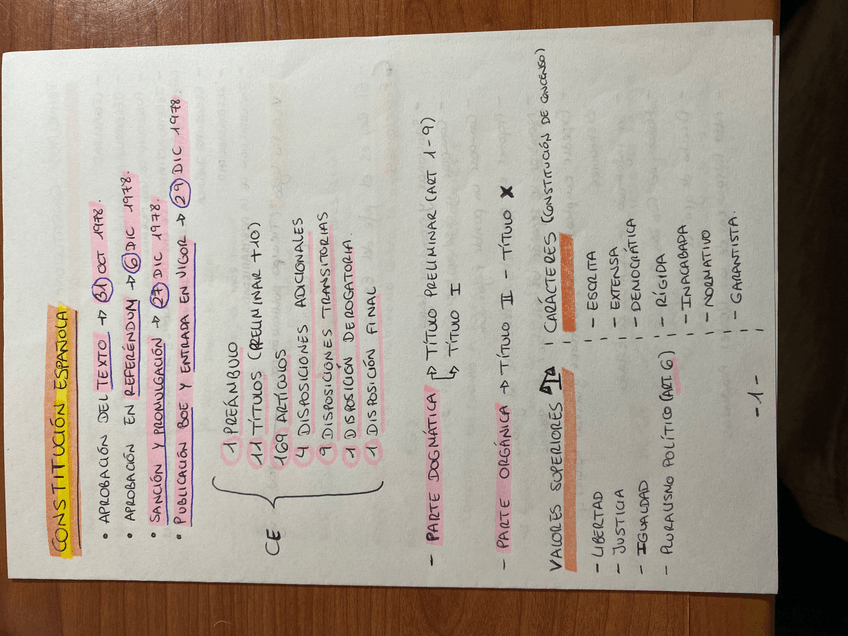 CONSTITUCIÓN ESPAÑOLA
• APROBACIÓN DEL TEXTO → 31 OCT 1978.
• APROBACIÓN EN REFERÉNDUM → 6 DIC 1978.
• SANCIÓN Y PROMULGACIÓN → 27 DIC 1978.
• PUBLICACIÓN BOE Y ENTRADA EN VIGOR → 29 DIC 1978.
CE
1 PREÁMBULO
11 TÍTULOS (PRELIMINAR + 10)
169 ARTÍCULOS
4 DISPOSICIONES ADICIONALES
9 DISPOSICIONES TRANSITORIAS
1 DISPOSICIÓN DEROGATORIA.
1 DISPOSICIÓN FINAL
- PARTE DOGMÁTICA → TÍTULO PRELIMINAR (ART 1-9)
↳ TÍTULO I
- PARTE ORGÁNICA → TÍTULO II - TÍTULO X
VALORES SUPERIORES
- LIBERTAD
- JUSTICIA
- IGUALDAD
- PLURALISMO POLÍTICO (ART 6)
CARÁCTERES (CONSTITUCIÓN DE CONCENSO)
- ESCRITA
- EXTENSA
- DEMOCRÁTICA
- RÍGIDA
- INACABADA
- NORMATIVO
- GARANTISTA.
-1-